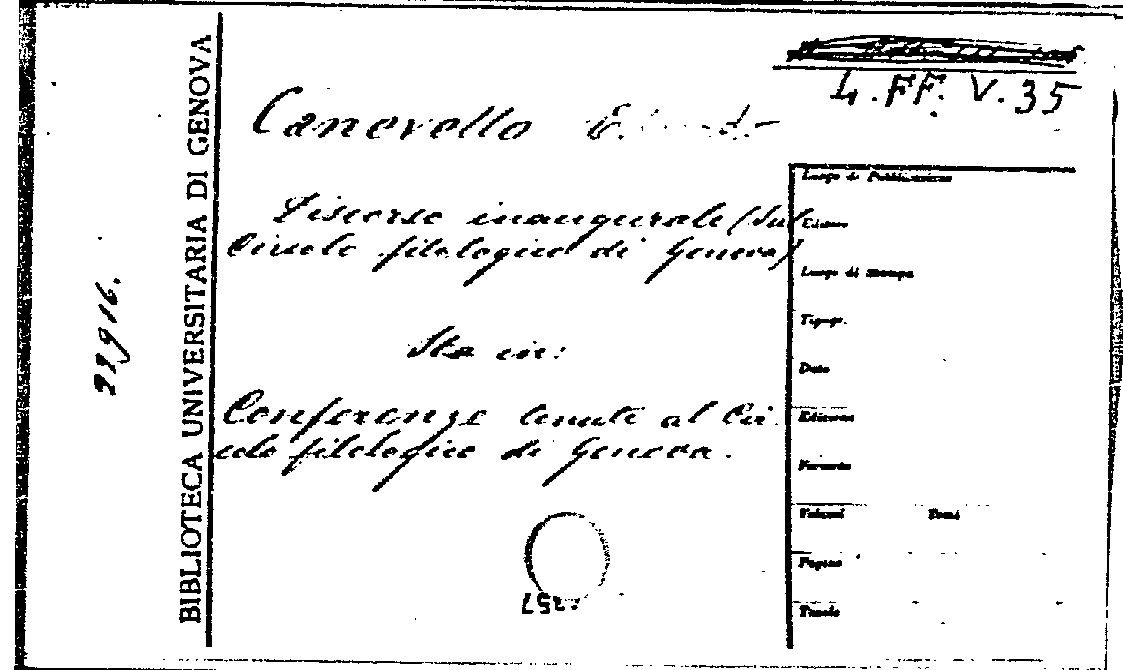 BIBLIOTECA UNIVERSITARIA DI GENOVA
22916.
4.FF. V.35
Canevello E.
Discorso inaugurale (Sul
Circolo filologico di Genova)
Sta in:
Conferenze tenute al Cir-
colo filologico di Genova.
Luogo di Pubblicazione
Editore
Luogo di stampa
Tipogr.
Data
Edizione
Formato
Volumi Tomi
Pagine
Tavole